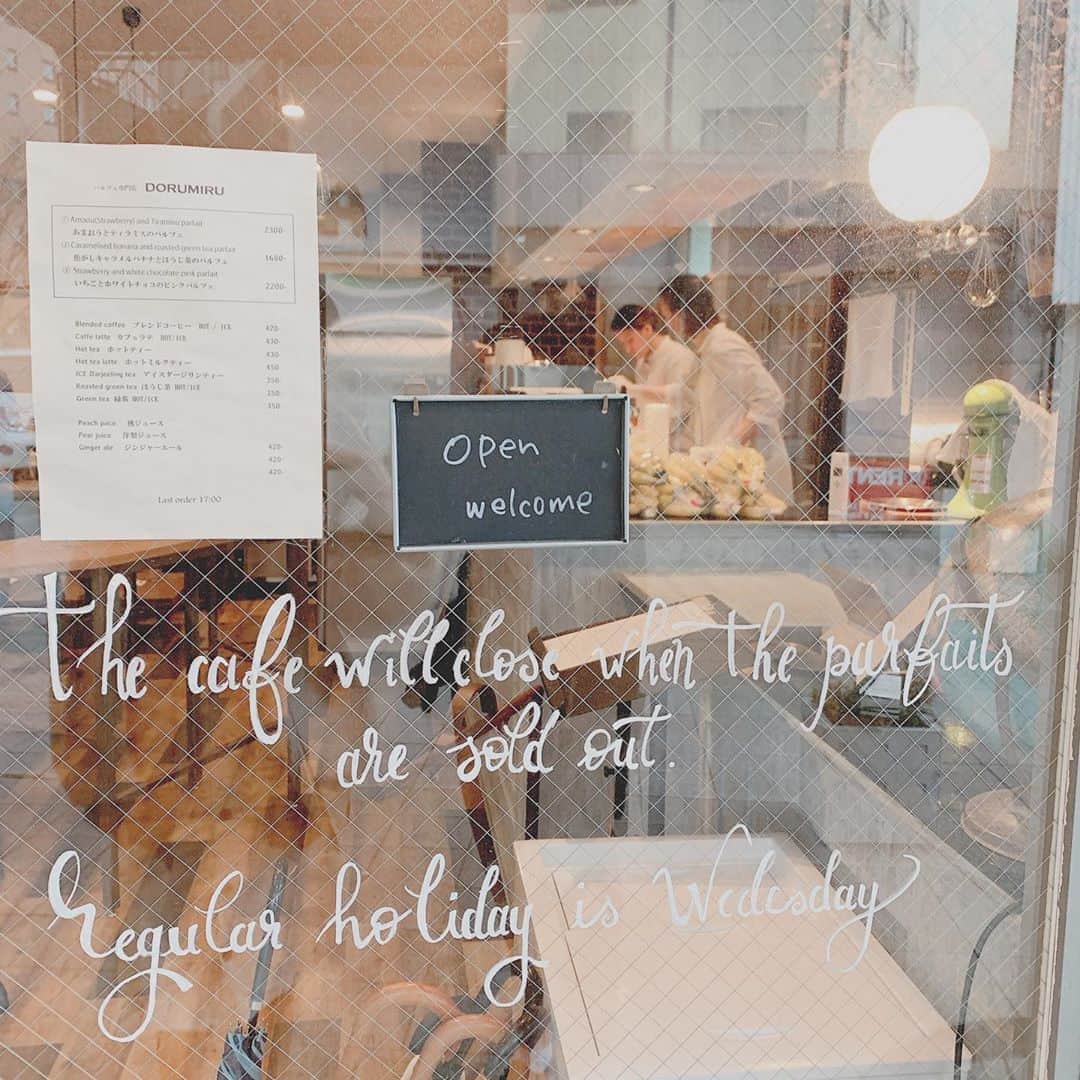 パルフェ専門店 DORUMIRU
① Amaou(Strawberry) and Tiramisu parfait
あまおうとティラミスのパルフェ 2300-
② Caramelised banana and roasted green tea parfait
焦がしキャラメルバナナとほうじ茶のパルフェ 1600-
③ Strawberry and white chocolate pink parfait
いちごとホワイトチョコのピンクパルフェ 2200-
Blended coffee ブレンドコーヒー HOT / ICE 420-
Caffe latte カフェラテ HOT/ICE 430-
Hot tea ホットティー 430-
Hot tea latte ホットミルクティー 450
ICE Darjeeling tea アイスダージリンティー 350-
Roasted green tea ほうじ茶 HOT/ICE 350-
Green tea 緑茶 HOT/ICE 350
Peach juice 桃ジュース
Pear juice 洋梨ジュース
Ginger ale ジンジャーエール 420-
420-
420-
Last order 17:00
open
welcome
The cafe will close when the parfaits
are sold out.
Regular holiday is Wedesday